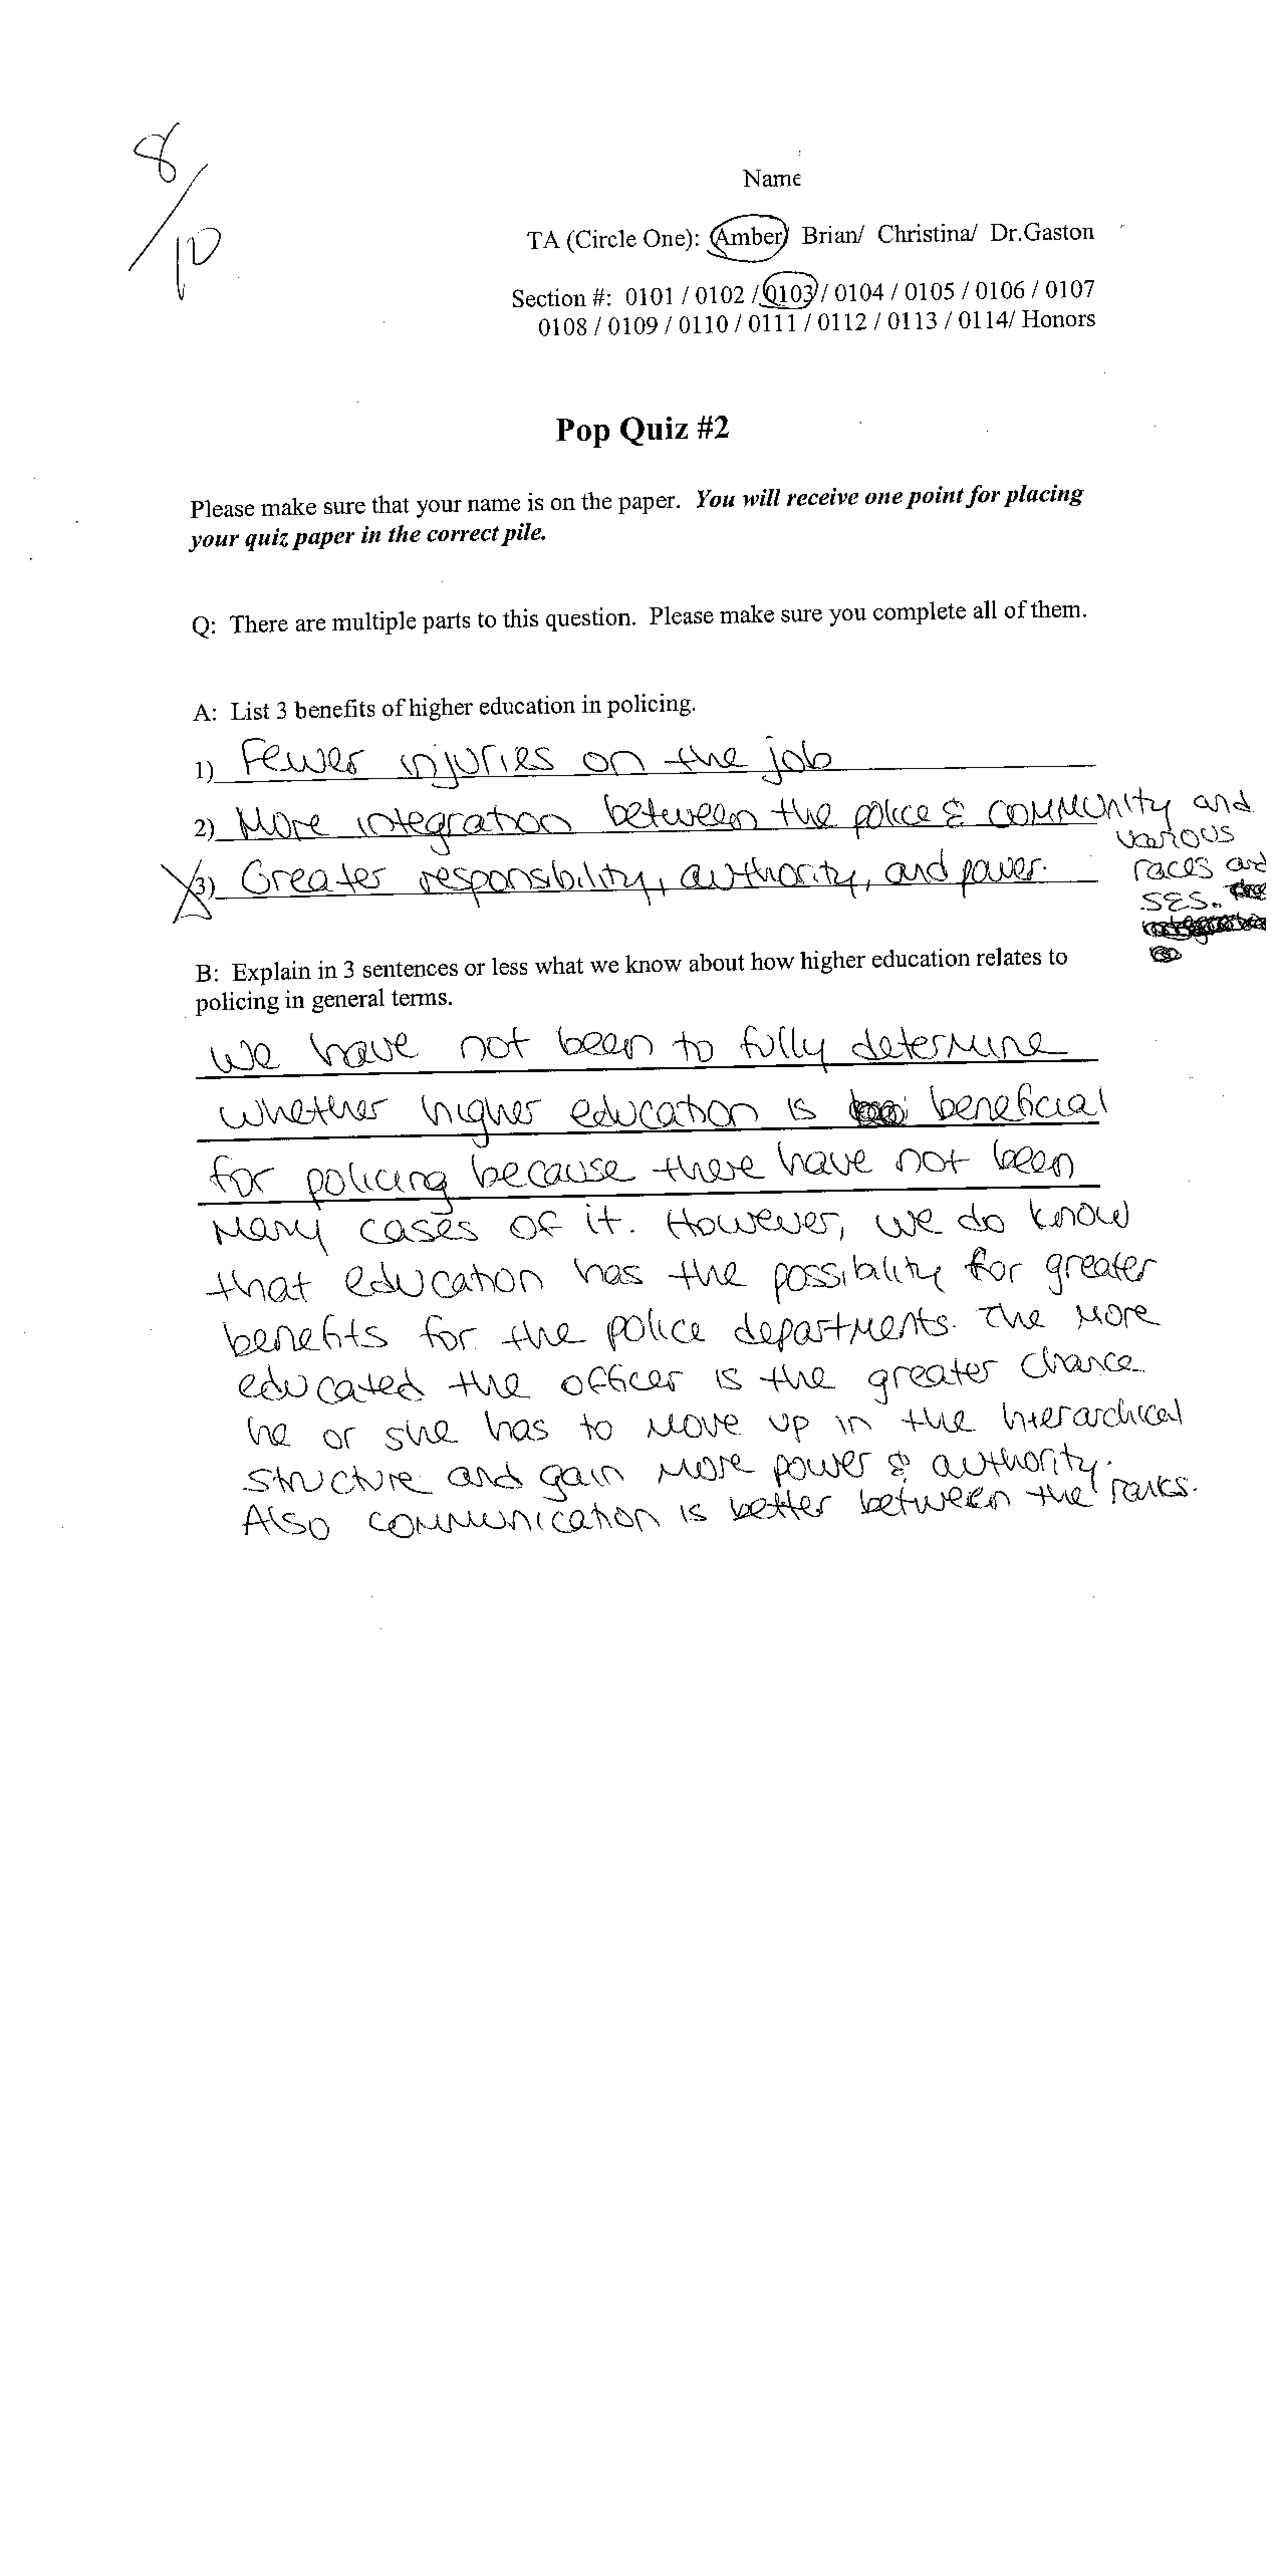 8/10
Name
TA (Circle One): Amber/ Brian/ Christina/ Dr.Gaston
Section #: 0101 / 0102 / 0103 / 0104 / 0105 / 0106 / 0107
0108 / 0109 / 0110 / 0111 / 0112 / 0113 / 0114/ Honors
Pop Quiz #2
Please make sure that your name is on the paper. You will receive one point for placing
your quiz paper in the correct pile.
Q: There are multiple parts to this question. Please make sure you complete all of them.
A: List 3 benefits of higher education in policing.
1) Fewer injuries on the job
2) More integration between the police & community and
various
races and
SES.
3) Greater responsibility, authority, and power.
B: Explain in 3 sentences or less what we know about how higher education relates to
policing in general terms.
We have not been to fully determine
whether higher education is beneficial
for policing because there have not been
many cases of it. However, we do know
that education has the possibility for greater
benefits for the police departments. The more
educated the officer is the greater chance
he or she has to move up in the hierarchical
structure and gain more power & authority.
Also communication is better between the ranks.